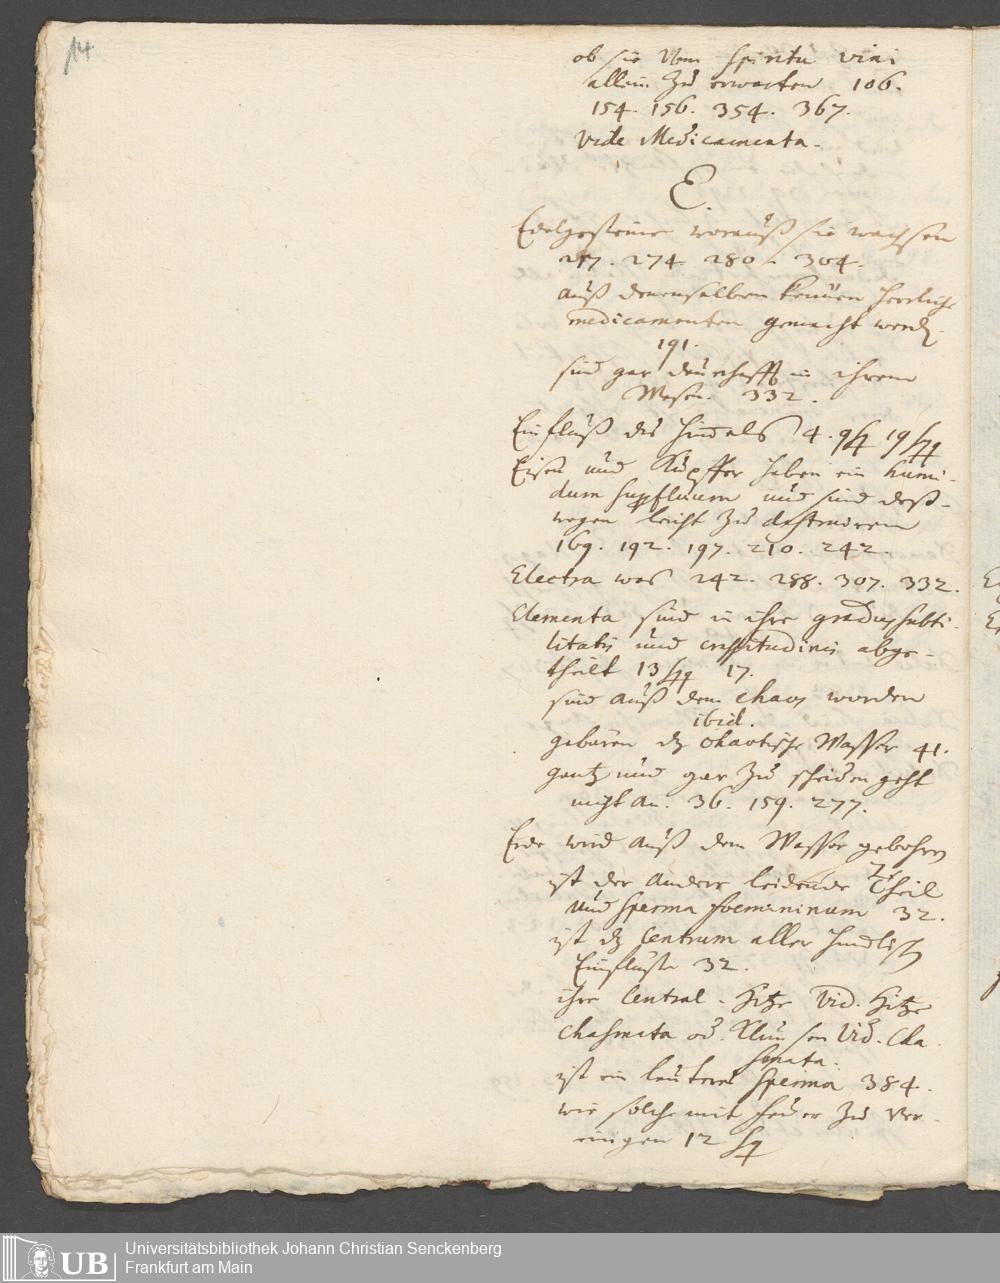 14
ob sie vom spiritu vini
allein zu erwarten 106.
154. 156. 354. 367.
vide Medicamenta.
E.
Edelgesteine worauß sie wachsen
274. 280. 304.
auß denenselben können herrliche
medicamenten gemacht werd.
191.
sind gar in ihrem
Wesen. 332.
Einfluß des Himels 4.
Eisen und Kupffer haben ein humi-
dum supfluum und sind deß-
wegen leicht zu destruiren
169. 192. 197. 210. 242
Electra was 242. 288. 307. 332.
Elementa sind in ihre gradus subti-
litatis und crassitudinis abge-
theilt 13 sq 17.
sind auß dem chaos worden
ibid.
gebären dz chaotische Wasser 41.
gantz und gar zu scheiden geht
nicht an. 36. 159. 277.
Erde wird auß dem Wasser gebohren
ist der andere leidende Theil
und sperma foemininum 32.
ist dz Centrum aller himlisch
Einflüsse 32.
ihre Central-Hitze vid. Hitze
Chasmata od. vid. Cha
smata.
ist ein lauteres Sperma 384.
wie solche mit feuer zu ver-
einigen 12 sq
UB
Universitätsbibliothek Johann Christian Senckenberg
Frankfurt am Main